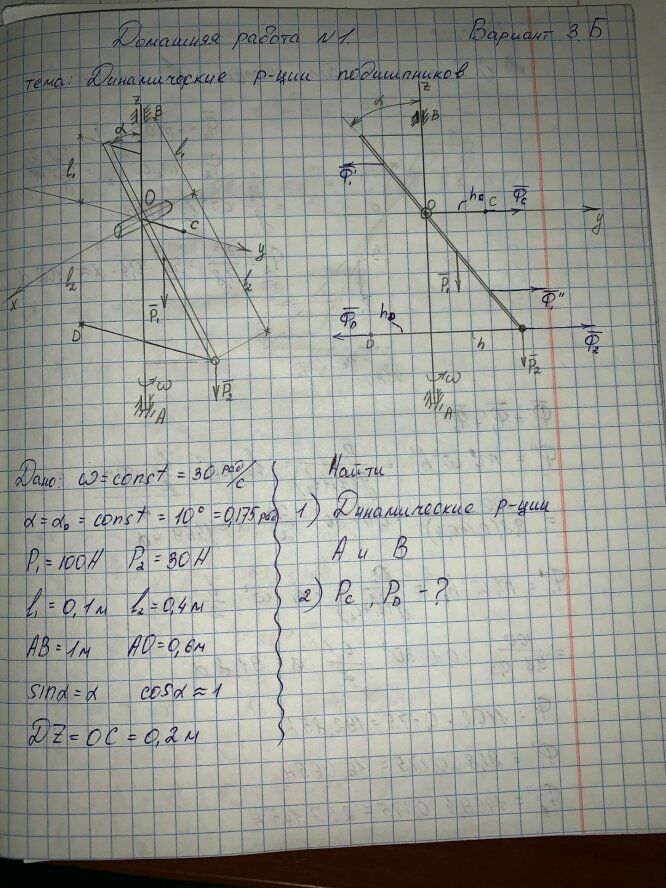 Домашняя работа №1. Вариант 3.Б
тема: Динамические р-ции подшипников
z
B
α
l₁
l₁
O
C
y
l₂
l₂
x
P̅₁
D
P̅₂
ω
A
α
z
B
Φ̅₁'
O
hc
C
Φ̅c
y
P̅₁
Φ̅₁''
Φ̅D
hD
D
h
Φ̅₂
P̅₂
ω
A
Дано: ω = const = 30 рад/с
α = α₀ = const = 10° = 0,175 рад
P₁ = 100Н P₂ = 30Н
l₁ = 0,1м l₂ = 0,4м
AB = 1м AO = 0,6м
sinα = α cosα ≈ 1
DZ = OC = 0,2м
Найти
1) Динамические р-ции
A и B
2) Pc, PD - ?